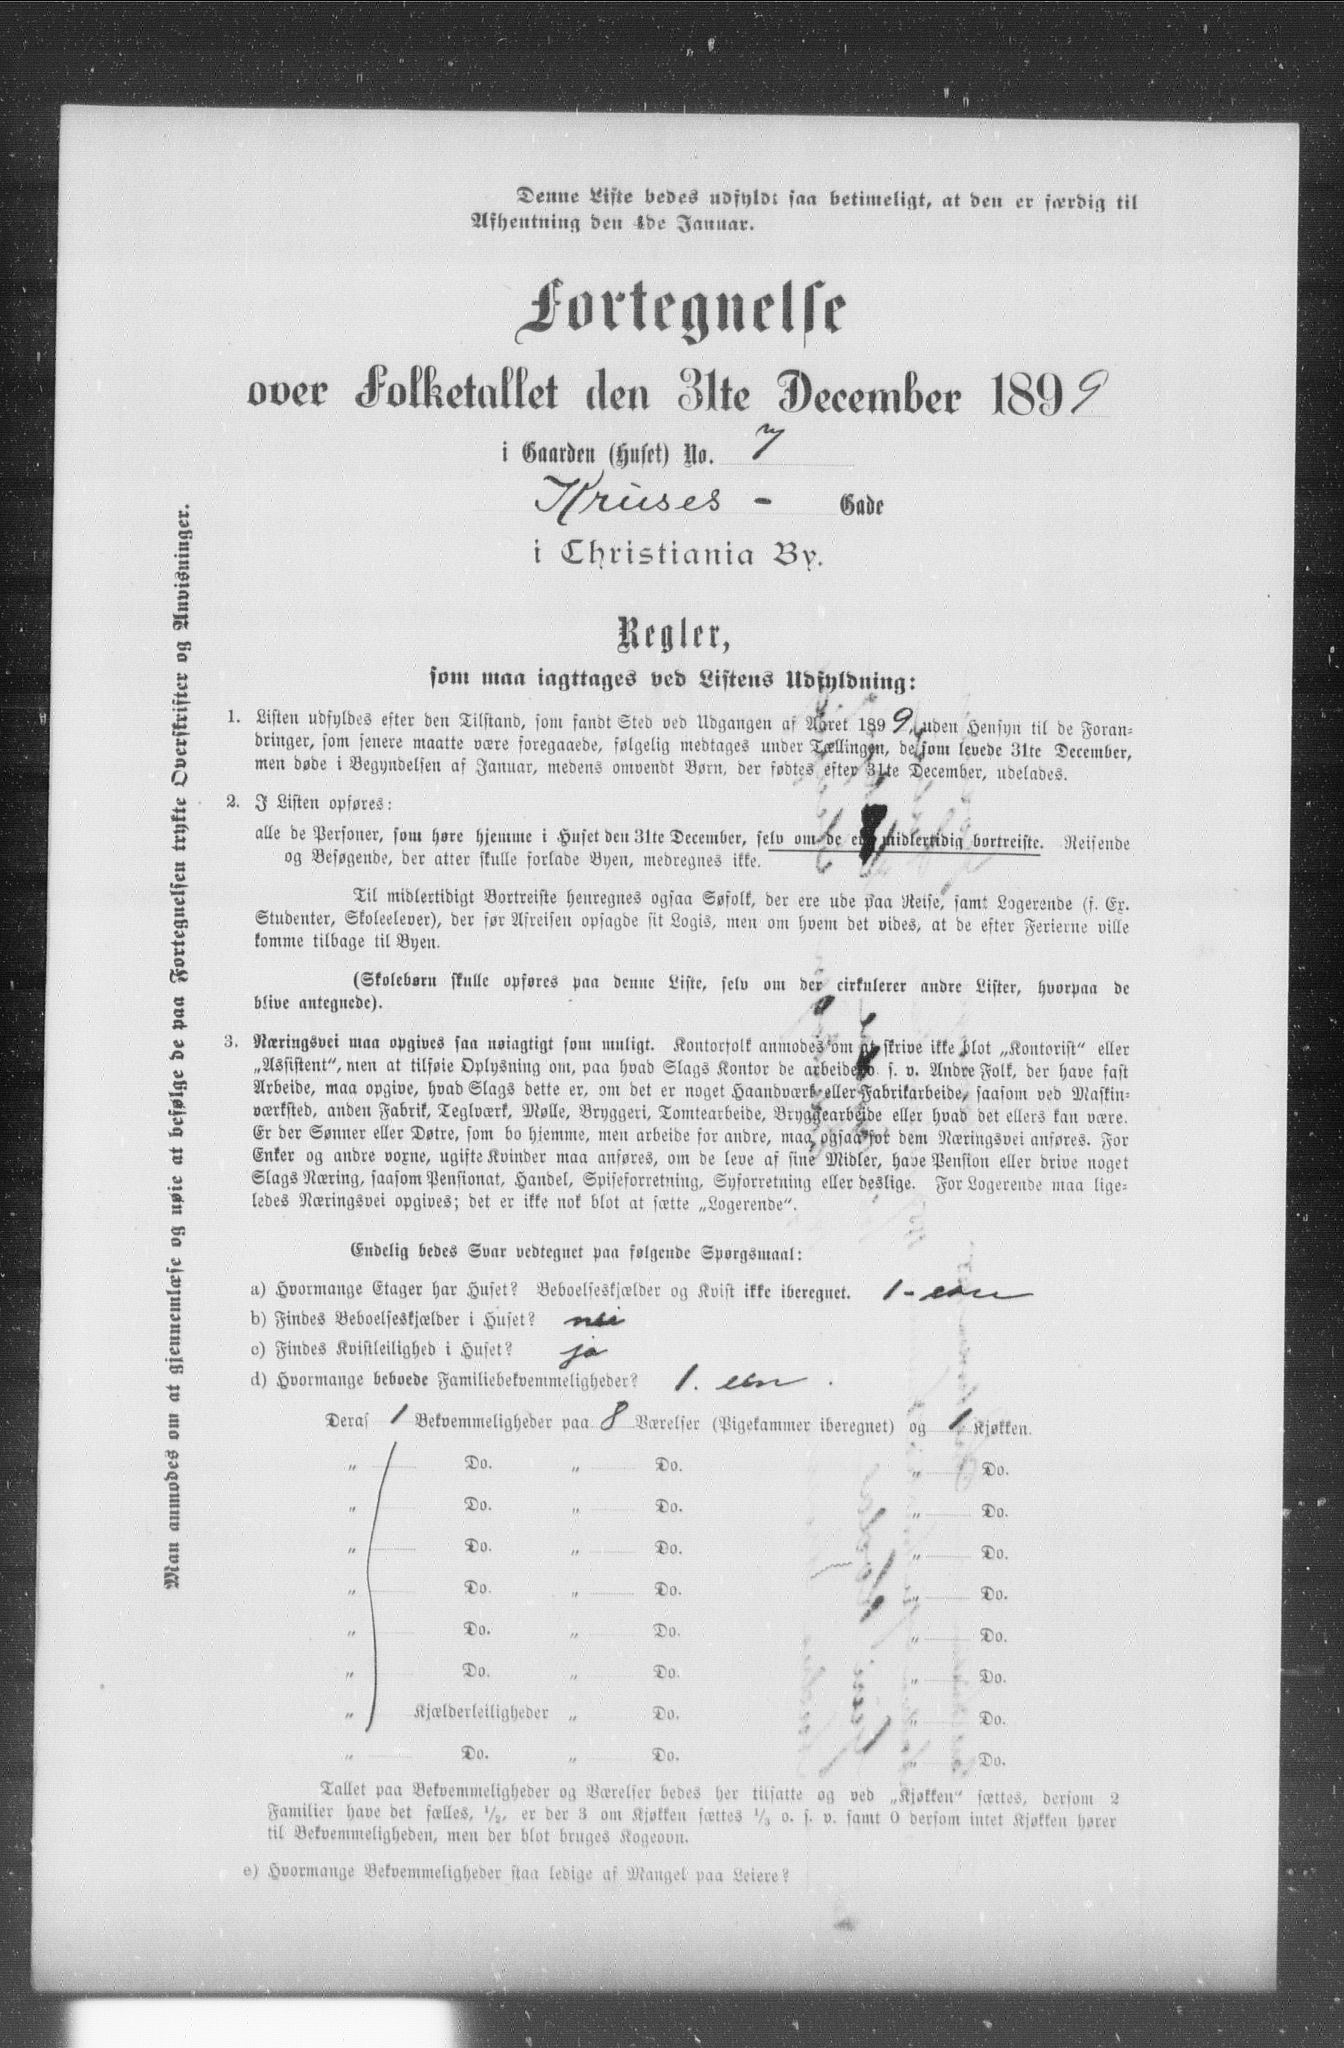 Denne Liste bedes udfyldt saa betimeligt, at den er færdig til
Afhentning den 4de Januar.
Fortegnelse
over Folketallet den 31te December 1899
i Gaarden (Huset) No. 7
Kruses - Gade
i Christiania By.
Regler,
som maa iagttages ved Listens Udfyldning:
1. Listen udfyldes efter den Tilstand, som fandt Sted ved Udgangen af Aaret 1899, uden Hensyn til de Foran-
dringer, som senere maatte være foregaaede, følgelig medtages under Tællingen, de som levede 31te December,
men døde i Begyndelsen af Januar, medens omvendt Børn, der fødtes efter 31te December, udelades.
2. I Listen opføres:
alle de Personer, som høre hjemme i Huset den 31te December, selv om de ere midlertidig bortreiste. Reisende
og Besøgende, der atter skulle forlade Byen, medregnes ikke.
Til midlertidigt Bortreiste henregnes ogsaa Søfolk, der ere ude paa Reise, samt Logerende (f. Ex.
Studenter, Skoleelever), der før Afreisen opsagde sit Logis, men om hvem det vides, at de efter Ferierne ville
komme tilbage til Byen.
(Skolebørn skulle opføres paa denne Liste, selv om der cirkulerer andre Lister, hvorpaa de
blive antegnede).
3. Næringsvei maa opgives saa nøiagtigt som muligt. Kontorfolk anmodes om at skrive ikke blot „Kontorist“ eller
„Assistent“, men at tilføie Oplysning om, paa hvad Slags Kontor de arbeide o. s. v. Andre Folk, der have fast
Arbeide, maa opgive, hvad Slags dette er, om det er noget Haandværk eller Fabrikarbeide, saasom ved Maskin-
værksted, anden Fabrik, Teglværk, Mølle, Bryggeri, Tomtearbeide, Bryggearbeide eller hvad det ellers kan være.
Er der Sønner eller Døtre, som bo hjemme, men arbeide for andre, maa ogsaa for dem Næringsvei anføres. For
Enker og andre voxne, ugifte Kvinder maa anføres, om de leve af sine Midler, have Pension eller drive noget
Slags Næring, saasom Pensionat, Handel, Spiseforretning, Syforretning eller deslige. For Logerende maa lige-
ledes Næringsvei opgives; det er ikke nok blot at sætte „Logerende“.
Endelig bedes Svar vedtegnet paa følgende Spørgsmaal:
a) Hvormange Etager har Huset? Beboelseskjælder og Kvist ikke iberegnet. 1 - een
b) Findes Beboelseskjælder i Huset? nei
c) Findes Kvistleilighed i Huset? ja
d) Hvormange beboede Familiebekvemmeligheder? 1. een.
Deraf 1 Bekvemmeligheder paa 8 Værelser (Pigekammer iberegnet) og 1 Kjøkken.
„ Do. „ Do. „ Do.
„ Do. „ Do. „ Do.
„ Do. „ Do. „ Do.
„ Do. „ Do. „ Do.
„ Do. „ Do. „ Do.
„ Do. „ Do. „ Do.
„ Kjælderleiligheder „ Do. „ Do.
„ Do. „ Do. „ Do.
Tallet paa Bekvemmeligheder og Værelser bedes her tilsatte og ved „Kjøkken“ sættes, dersom 2
Familier have det fælles, 1/2, er der 3 om Kjøkken sættes 1/3 o. s. v. samt 0 dersom intet Kjøkken hører
til Bekvemmeligheden, men der blot bruges Kogeovn.
e) Hvormange Bekvemmeligheder staa ledige af Mangel paa Leiere?
Man anmodes om at gjennemlæse og nøie at befølge de paa Fortegnelsen trykte Overskrifter og Anvisninger.